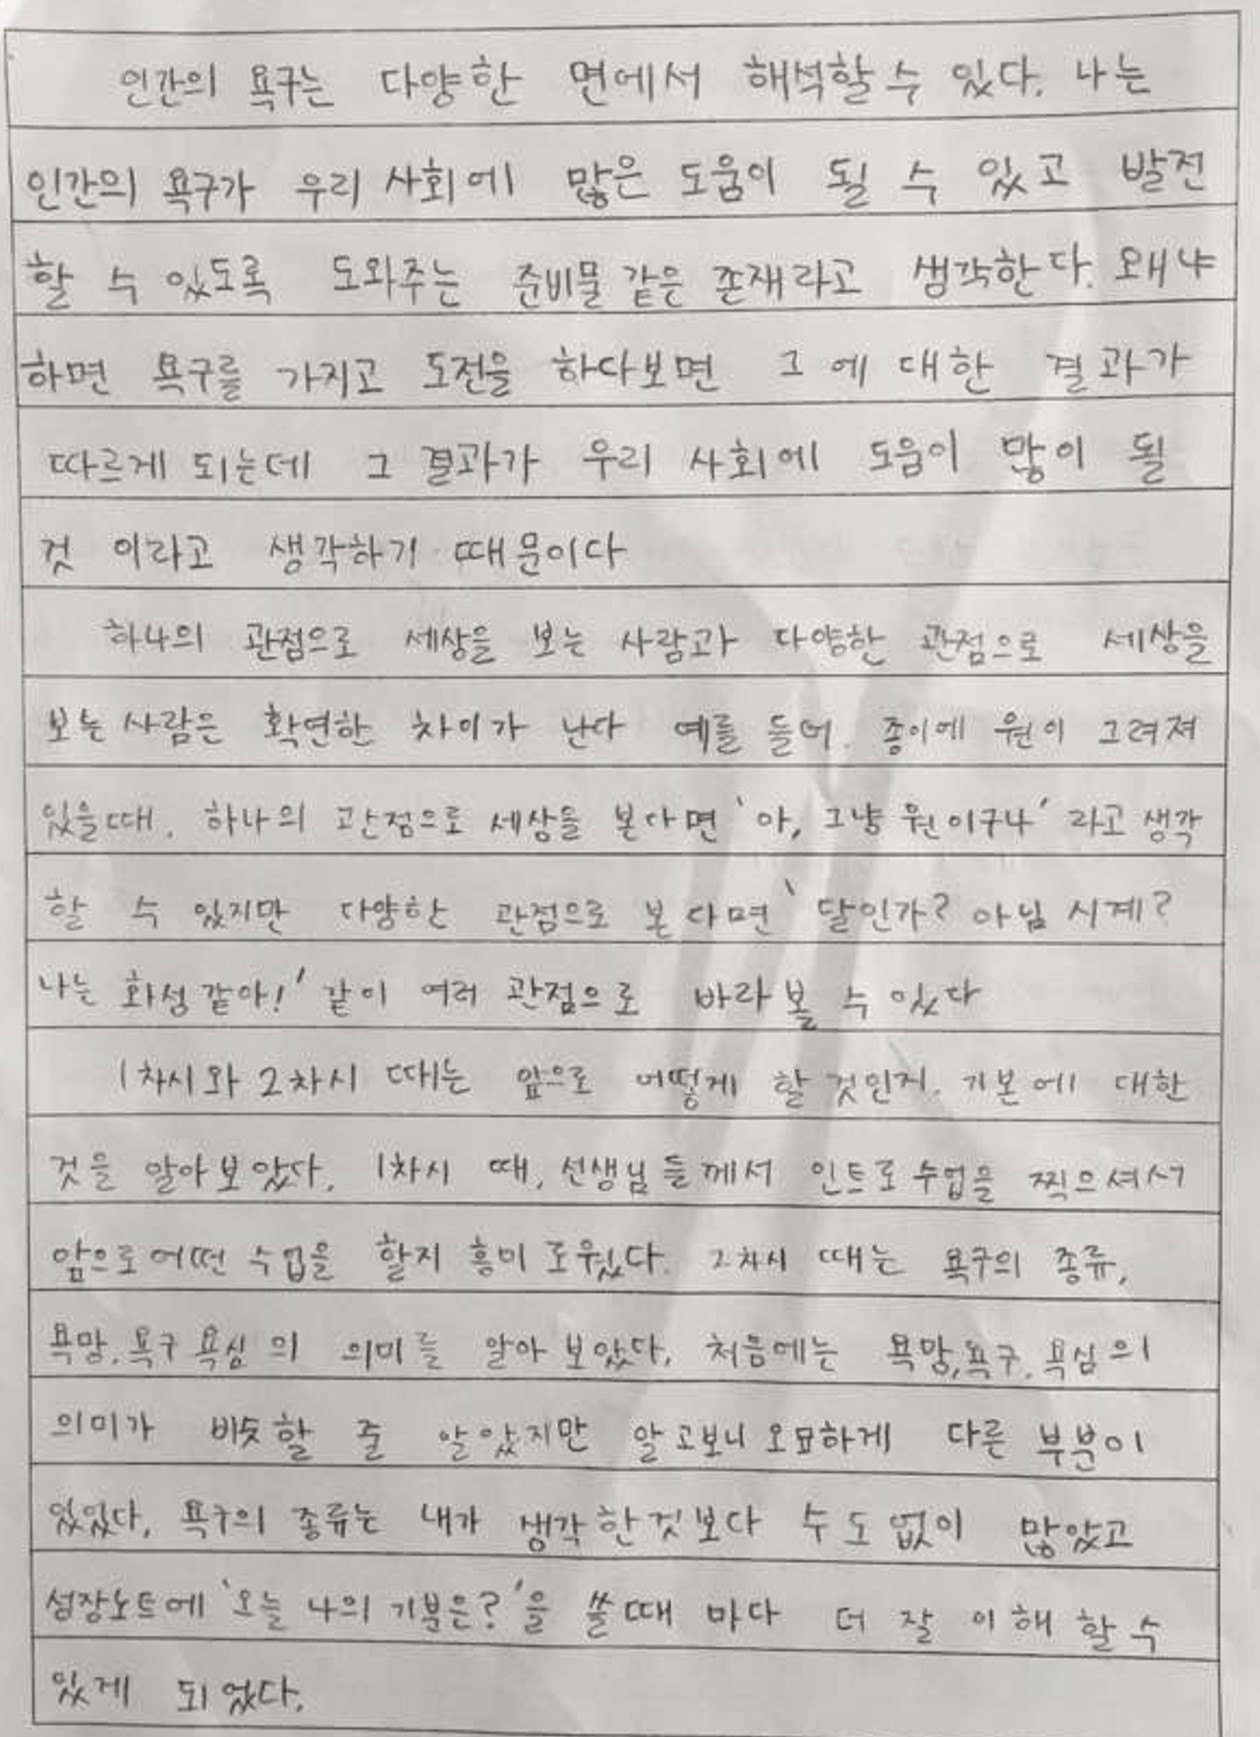 인간의 욕구는 다양한 면에서 해석할 수 있다. 나는
인간의 욕구가 우리 사회에 많은 도움이 될 수 있고 발전
할 수 있도록 도와주는 준비물 같은 존재라고 생각한다. 왜냐
하면 욕구를 가지고 도전을 하다보면 그에 대한 결과가
따르게 되는데 그 결과가 우리 사회에 도움이 많이 될
것 이라고 생각하기 때문이다
하나의 관점으로 세상을 보는 사람과 다양한 관점으로 세상을
보는 사람은 확연한 차이가 난다 예를 들어, 종이에 원이 그려져
있을때, 하나의 관점으로 세상을 본다면 '아, 그냥 원이구나' 라고 생각
할 수 있지만 다양한 관점으로 본다면 '달인가? 아님 시계?
나는 화성같아!' 같이 여러 관점으로 바라볼 수 있다
1차시와 2차시 때는 앞으로 어떻게 할 것인지, 기본에 대한
것을 알아보았다. 1차시 때, 선생님들께서 인트로 수업을 찍으셔서
앞으로 어떤 수업을 할지 흥미로웠다. 2차시 때는 욕구의 종류,
욕망, 욕구 욕심의 의미를 알아보았다. 처음에는 욕망, 욕구, 욕심의
의미가 비슷할 줄 알았지만 알고보니 오묘하게 다른 부분이
있었다. 욕구의 종류는 내가 생각한것보다 수도 없이 많았고
성장노트에 '오늘 나의 기분은?'을 쓸때 마다 더 잘 이해 할 수
있게 되었다.